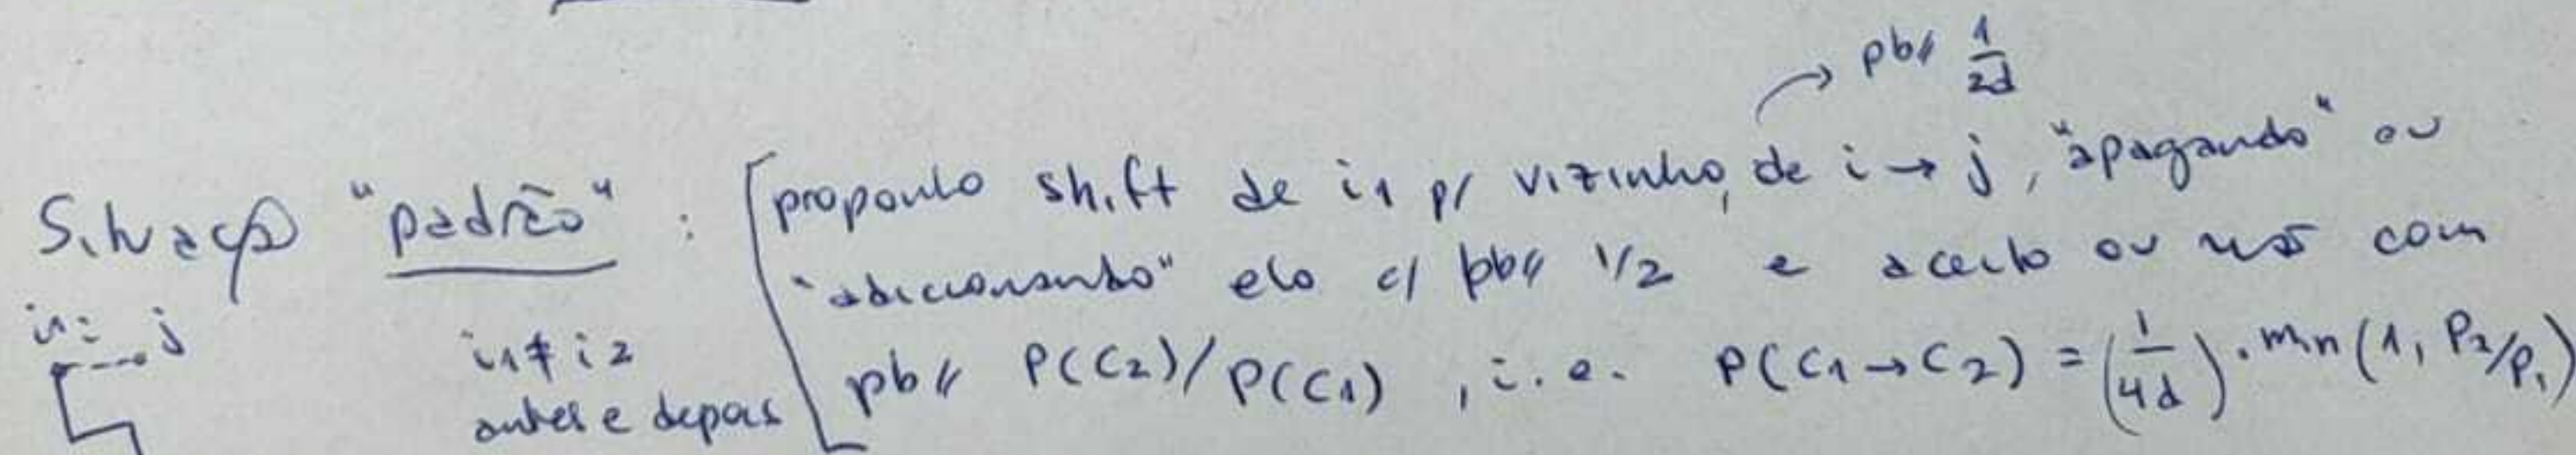 → pb// 1/2d
Situação "padrão" : [proponho shift de i1 p/ vizinho, de i → j, "apagando" ou
"adicionando" elo c/ pb// 1/2 e aceito ou não com
pb// P(C2)/P(C1), i.e. P(C1→C2) = (1/4d) . min(1, P2/P1)
i1=i j
i1≠i2
antes e depois